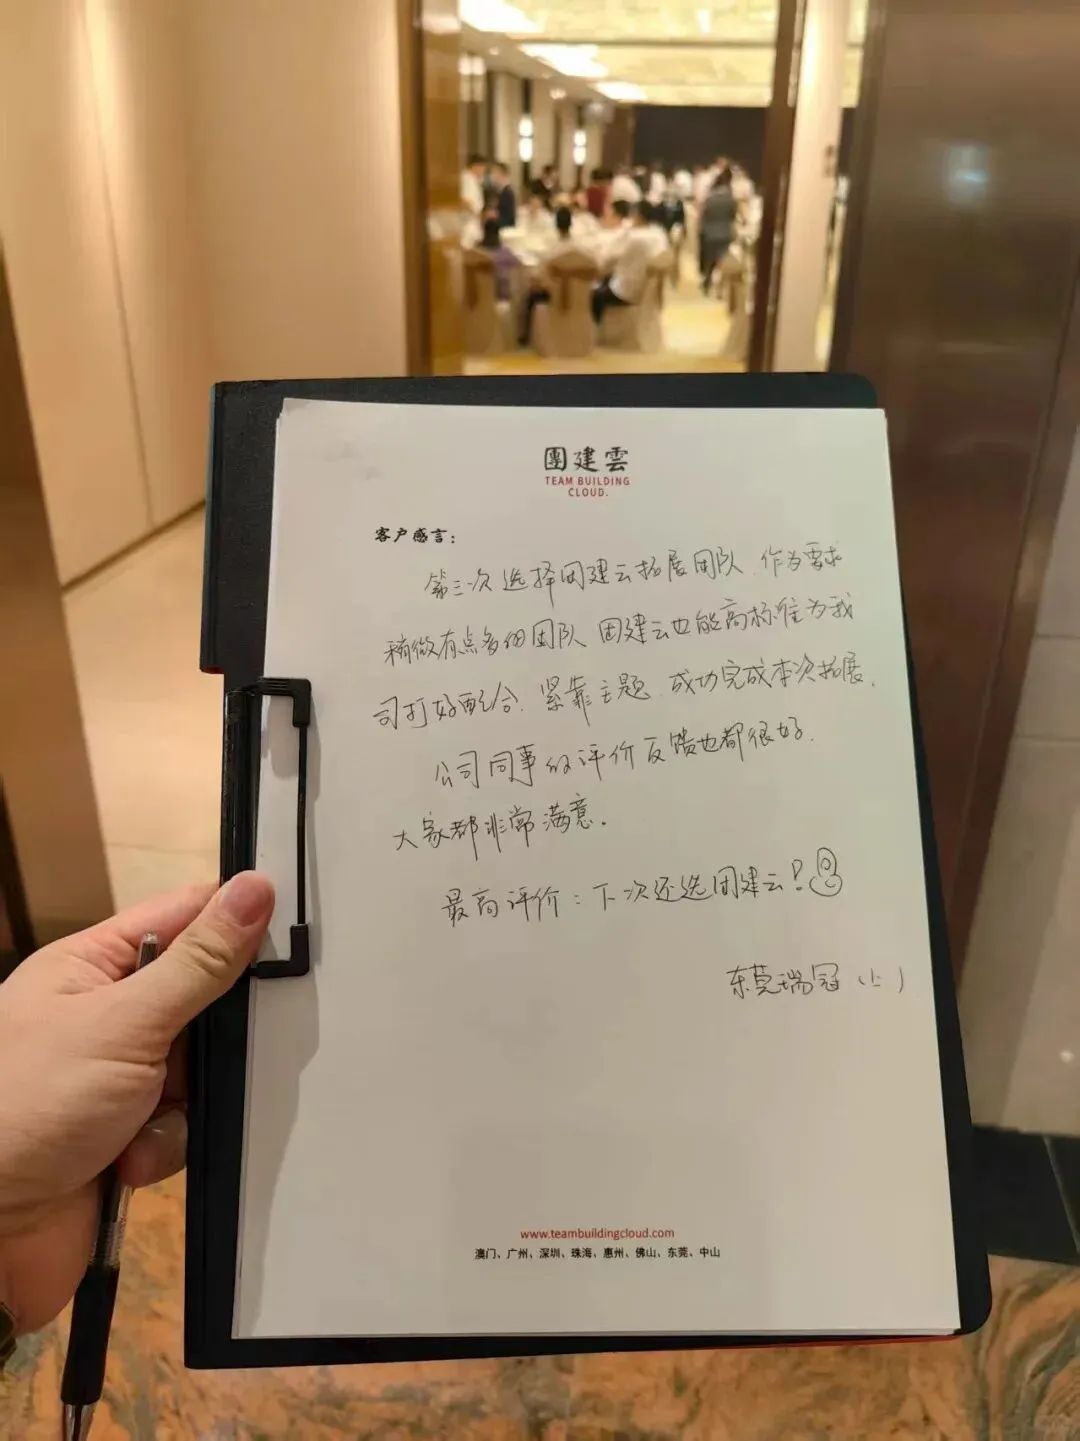 團建雲
TEAM BUILDING
CLOUD.
客户感言：
第三次选择团建云拓展团队，作为要求
稍微有点多的团队，团建云也能高标准为我
司打好配合，紧靠主题，成功完成本次拓展。
公司同事的评价反馈也都很好，
大家都非常满意。
最高评价：下次还选团建云！
东莞瑞冠
www.teambuildingcloud.com
澳门、广州、深圳、珠海、惠州、佛山、东莞、中山